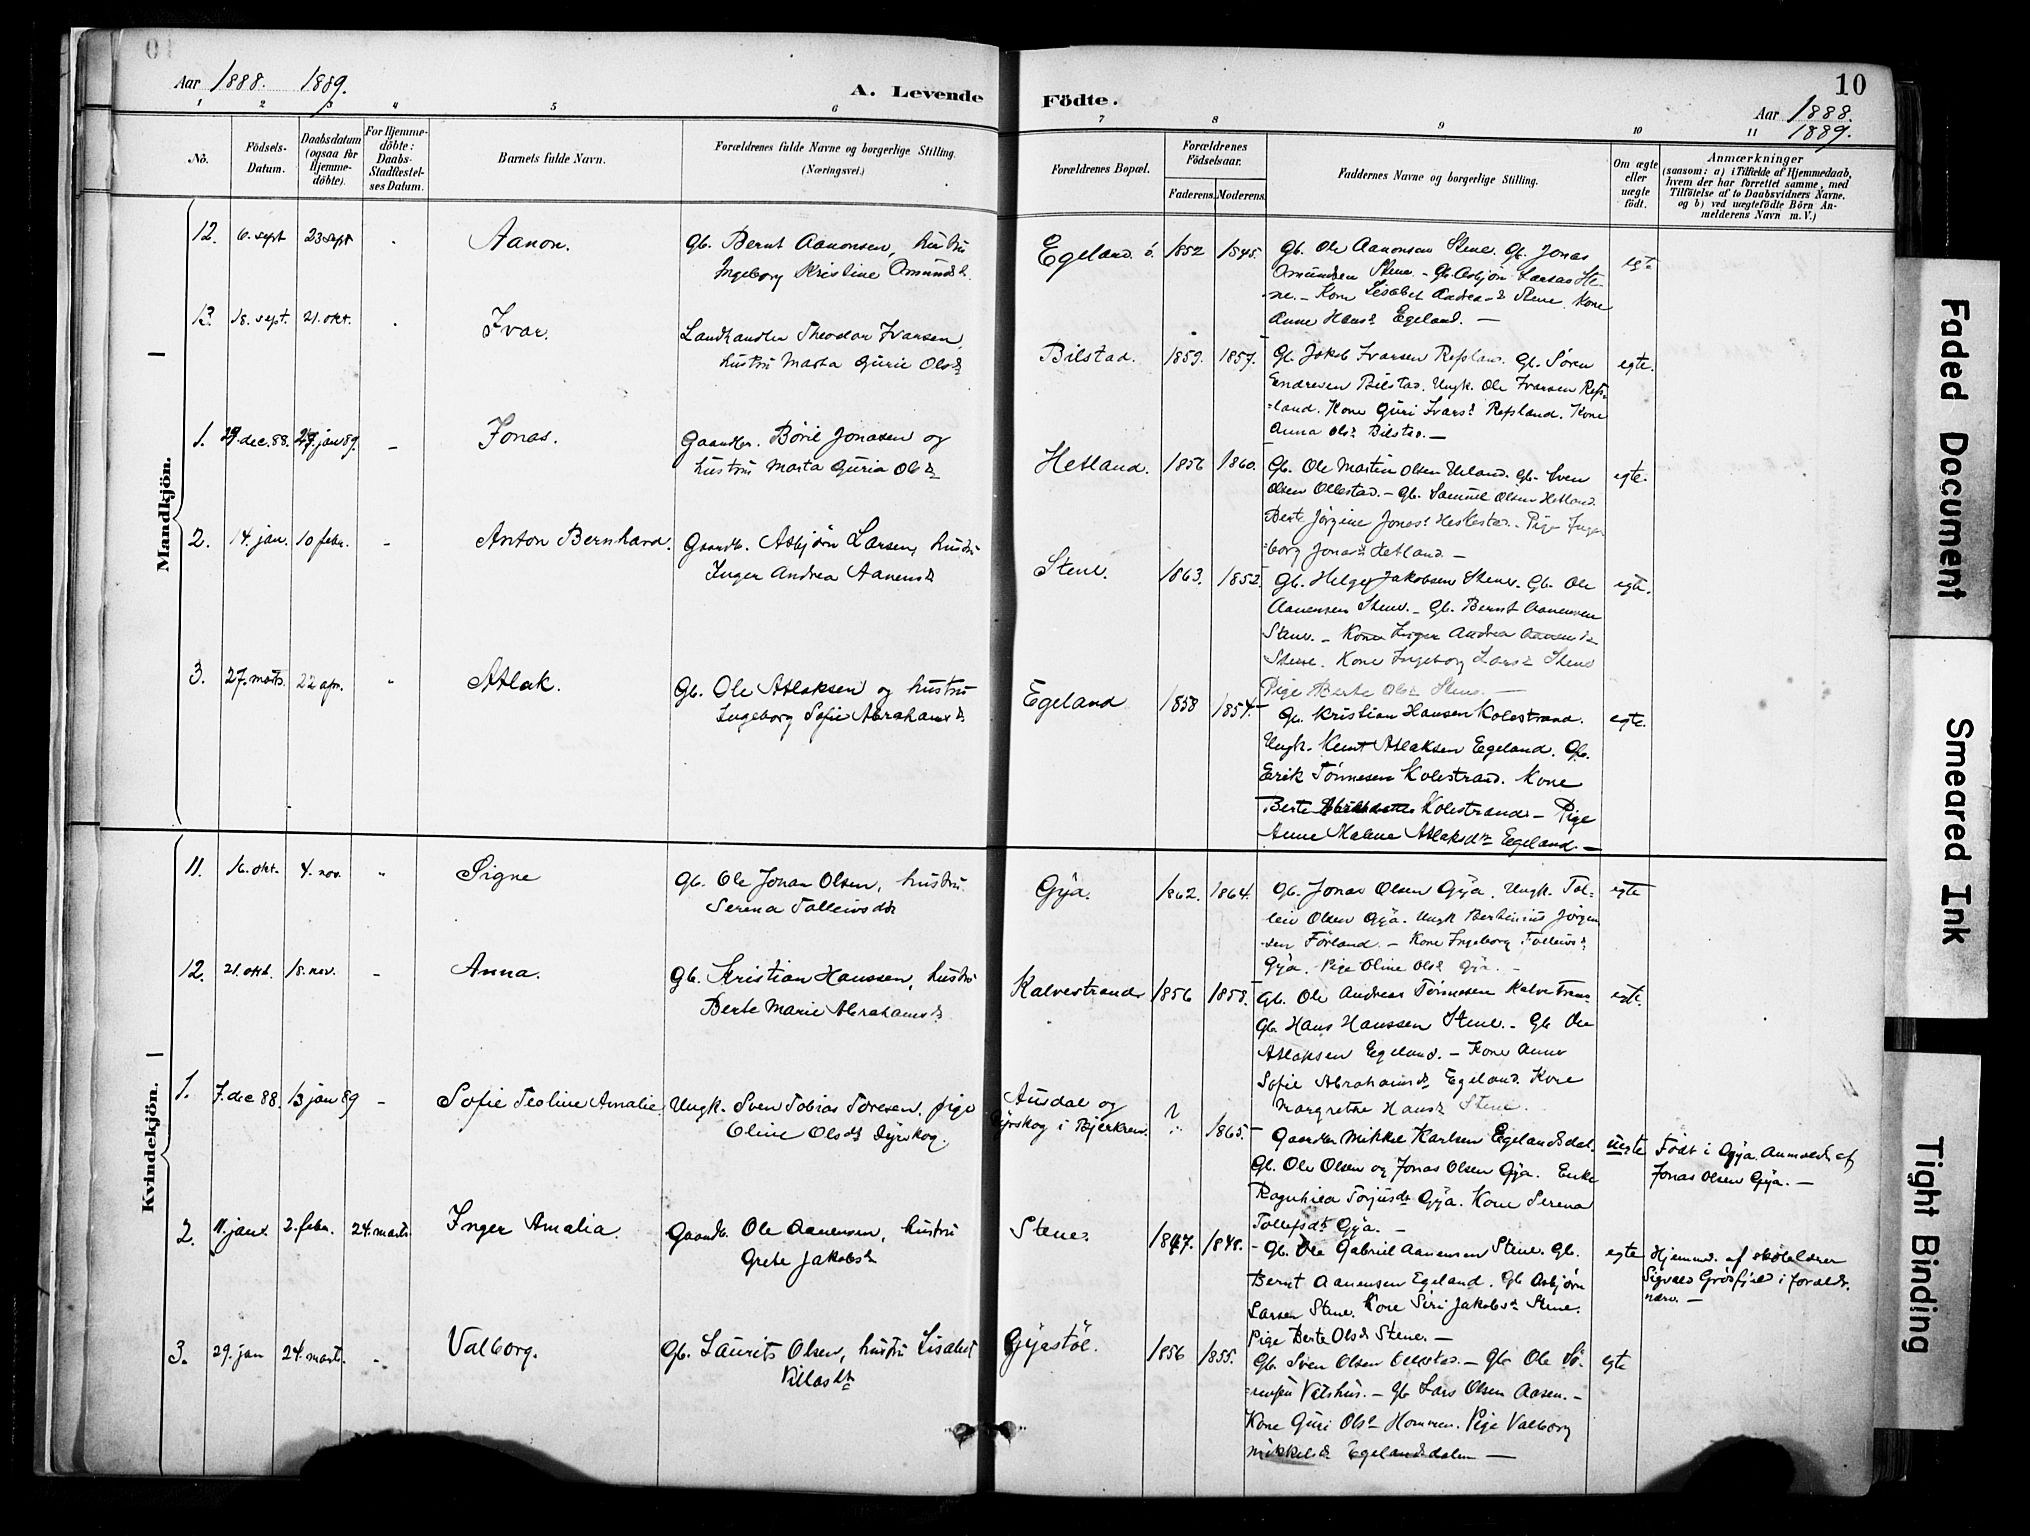 10
Aar 1888. 1889.
A. Levende Födte.
Aar 1888. 1889.
1 2 3 4 5 6 7 8 9 10 11
Nò.
Födsels-
Datum.
Daabsdatum
(ogsaa for
Hjemme-
döbte).
For Hjemme-
döbte:
Daabs-
Stadfæstel-
ses Datum.
Barnets fulde Navn.
Forældrenes fulde Navne og borgerlige Stilling.
(Næringsvei.)
Forældrenes Bopæl.
Forældrenes
Födselsaar.
Faderens.
Moderens.
Faddernes Navne og borgerlige Stilling.
Om ægte
eller
uægte
födt.
Anmærkninger
(saasom: a) i Tilfælde af Hjemmedaab,
hvem der har forrettet samme, med
Tilföielse af to Daabsvidners Navne.
og b) ved uægtefödte Börn An-
melderens Navn m. V.)
Mandkjön.
12. 6. sept 23 sept " Aanon.
Gb. Bernt Aanonsen, hustru
Ingeborg Kristine Omundsd.
Egeland ö. 1852 1845.
Gb. Ole Aanonsen Stene. Gb. Jonas
Omundsen Stene. - Gb. Asbjörn Larsen Ste-
ne. - Kone Lisabet Andrea-d Stene. Kone
Anne Hansd. Egeland. -
egte
13. 18. sept. 21. okt. " Ivar.
Landhandler Theodor Ivarsen,
hustru Marta Gurie Olsd.
Bilstad. 1859. 1857.
Gb. Jakob Ivarsen Refsland. Gb. Sören
Endresen Bilstad. Ungk. Ole Ivarsen Refs-
land. Kone Guri Ivarsd. Refsland. Kone
Anna Olsd. Bilstad. -
egte.
1. 29. dec. 88. 27. jan 89. - Jonas.
Gaardbr. Böril Jonasen og
hustru Marta Guria Olsd.
Hetland. 1856 1860.
Gb. Ole Martin Olsen Ueland. Gb. Sven
Olsen Ollestad. - Gb. Samuel Olsen Hetland
Berte Jörgine Jonasd Heskestad. - Pige Inge-
borg Jonasd. Hetland. -
egte.
2. 14. jan. 10 febr. - Anton Bernhard.
Gaardb. Asbjörn Larsen, hustru
Inger Andrea Aanensd.
Stene. 1863. 1852.
Gb. Helge Jakobsen Stene. Gb. Ole
Aanensen Stene. - Gb. Bernt Aanensen
Stene. - Kone Inger Andrea Aanensd.
Stene. Kone Ingeborg Larsd. Stene
Pige Berte Olsd. Stene. -
egte.
3. 27. marts. 22 apr. " Atlak.
Gb. Ole Atlaksen og hustru
Ingeborg Sofie Abrahamsd.
Egeland 1858 1854.
Gb. Kristian Hansen Kolestrand.
Ungk. Knut Atlaksen Egeland. Gb.
Erik Tönnesen Kolestrand. Kone
Berte Kolestrand. - Pige
Anne Malene Atlaksdr. Egeland. -
egte.
Kvindekjön.
11. 16. okt. 4. nov. " Signe
Gb. Ole Jonan Olsen, hustru
Serena Tolleivsdtr
Gya. 1862. 1864.
Gb. Jonas Olsen Gya. Ungk. Tol-
leiv Olsen Gya. Ungk Bertinius Jörgen-
sen Förland. - Kone Ingeborg Tolleivsd.
Gya. Pige Oline Olsd. Gya. -
egte
12. 21. okt. 18. nov. - Anna.
Gb. Kristian Hanssen, hustru
Berte Marie Abrahamsd.
Kalvestrand 1856 1858.
Gb. Ole Andreas Tönnesen Kalvestrand
Gb. Hans Hanssen Stene. - Gb Ole
Atlaksen Egeland. - Kone Anne
Sofie Abrahamsd. Egeland. Kone
Margrethe Hansd. Stene.
egte.
1. 7. dec 88. 13 jan 89 - Sofie Teoline Amalie.
Ungk. Sven Tobias Toresen. pige
Oline Olsdt Dyrskog.
Ausdal og
Dyrskog i Bjerkrem. ? 1865.
Gaardbr Mikkel Karlsen Egelandsdal.
Gb. Ole Olsen og Jonas Olsen Gya. Enke
Ragnhild Torjusdr Gya. Kone Serena
Tollefsdt. Gya. -
uegte
Födt i Gya. Anmeldt af
Jonas Olsen Gya. -
2. 11. jan. 2. febr. 24. marts Inger Amalia.
Gaardb. Ole Aanensen, hustru
Grete Jakobsd.
Stene. 1847. 1848.
Gb. Ole Gabriel Aanensen Stene. Gb.
Bernt Aanensen Egeland. Gb Asbjörn
Larsen Stene. Kone Siri Jakobsd. Stene.
Pige Berte Olsd. Stene. -
egte
Hjemmed. af skolelærer
Sigvald Grösfjeld i foræld.
nærv. -
3. 29. jan 24. marts. " Valborg.
Gb. Laurits Olsen, hustru Lisabet
Villasdtr
Gyastöl. 1856 1855.
Gb. Sven Olsen Ollestad. - Gb Ole Sö-
rensen Vatshus. - Gb Lars Olsen Aasen. -
Kone Guri Olsd. Hommen. Pige Valborg
Mikkelsd. Egelandsdalen -
egte
Faded Document
Smeared Ink
Tight Binding